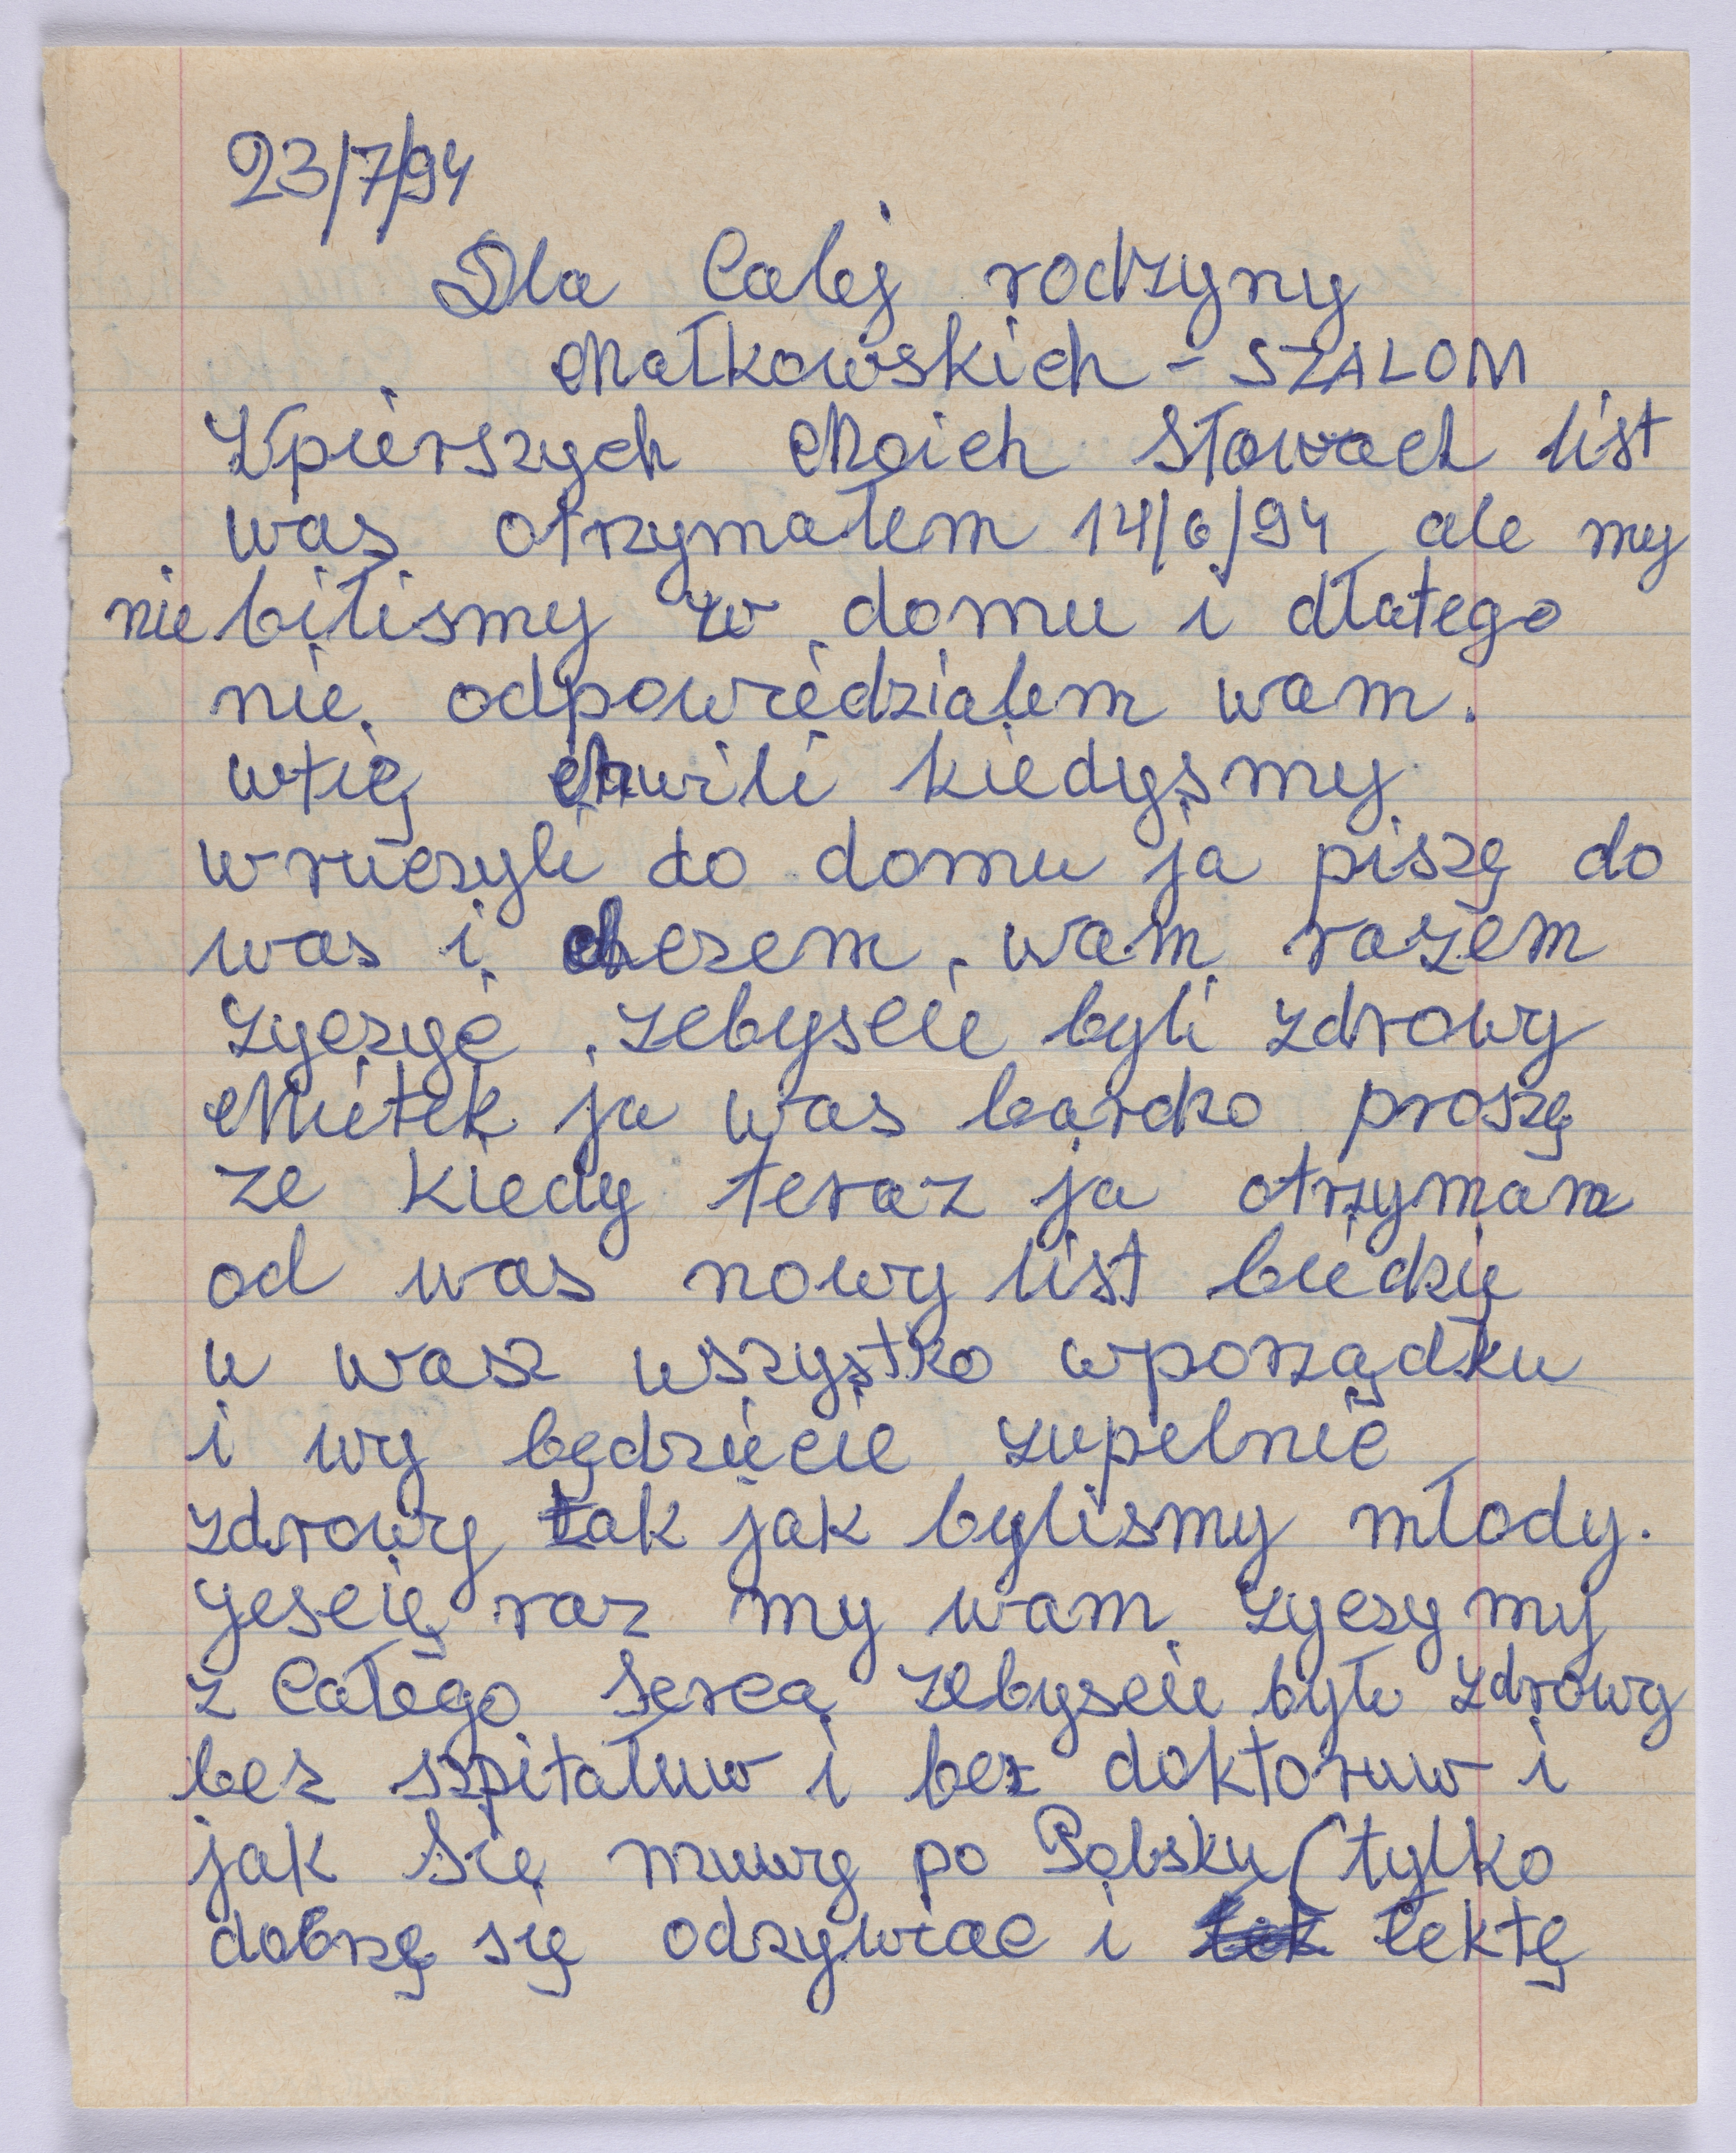 23/7/94
Dla Calej rodzyny
Małkowskich - SZALOM
Wpierszych Moich Słowach list
was otrzymałem 14/6/94 ale my
nie biliśmy w domu i dłatego
nie odpowiedzialem wam.
wtię chwili kiedyśmy
wruczyli do domu ja piszę do
was i chcem wam razem
zyczyć zebyscie byli zdrowy
Mietek ja was bardzo proszę
ze kiedy teraz ja otrzymam
od was nowy list biedzie
u wasz wszystko wporządku
i wy będziecie zupelnie
zdrowy tak jak bylismy młody.
yescię raz my wam zyczymy
z Całego serca zebyscie byli zdrowy
bez szpitałuw i bez doktoruw i
jak się muwy po Polsku (tylko
dobrzę się odzywiac i lektę